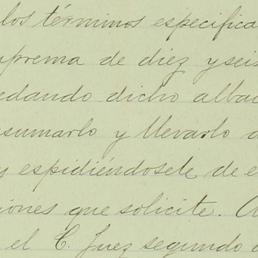 los términos especifica
uprema de diez y seis
edando dicho albac
sumarlo y llevarlo a
y espidiéndosele de e
iones que solicite. A
el C. Juez segundo d